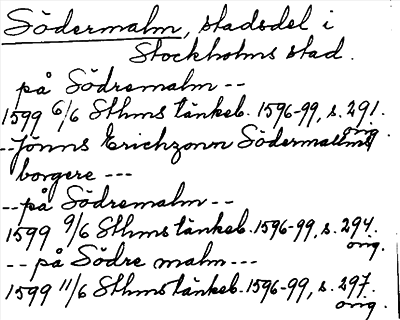 Södermalm, stadsdel i
Stockholms stad.
på Södremalm --
1599 6/6 Sthms tänkeb. 1596-99, s. 291.
orig.
--Jönns Erichzonn Södermallms
borgere ---
--på Södremalm --
1599 9/6 Sthms tänkeb. 1596-99, s. 294.
orig.
--på Södre malm ---
1599 11/6 Sthms tänkeb. 1596-99, s. 297.
orig.